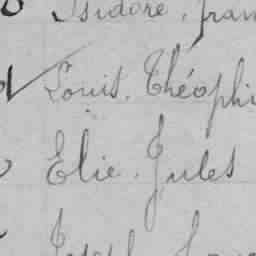 Isidore, fran
Louis, Théophi
Elie, Jules